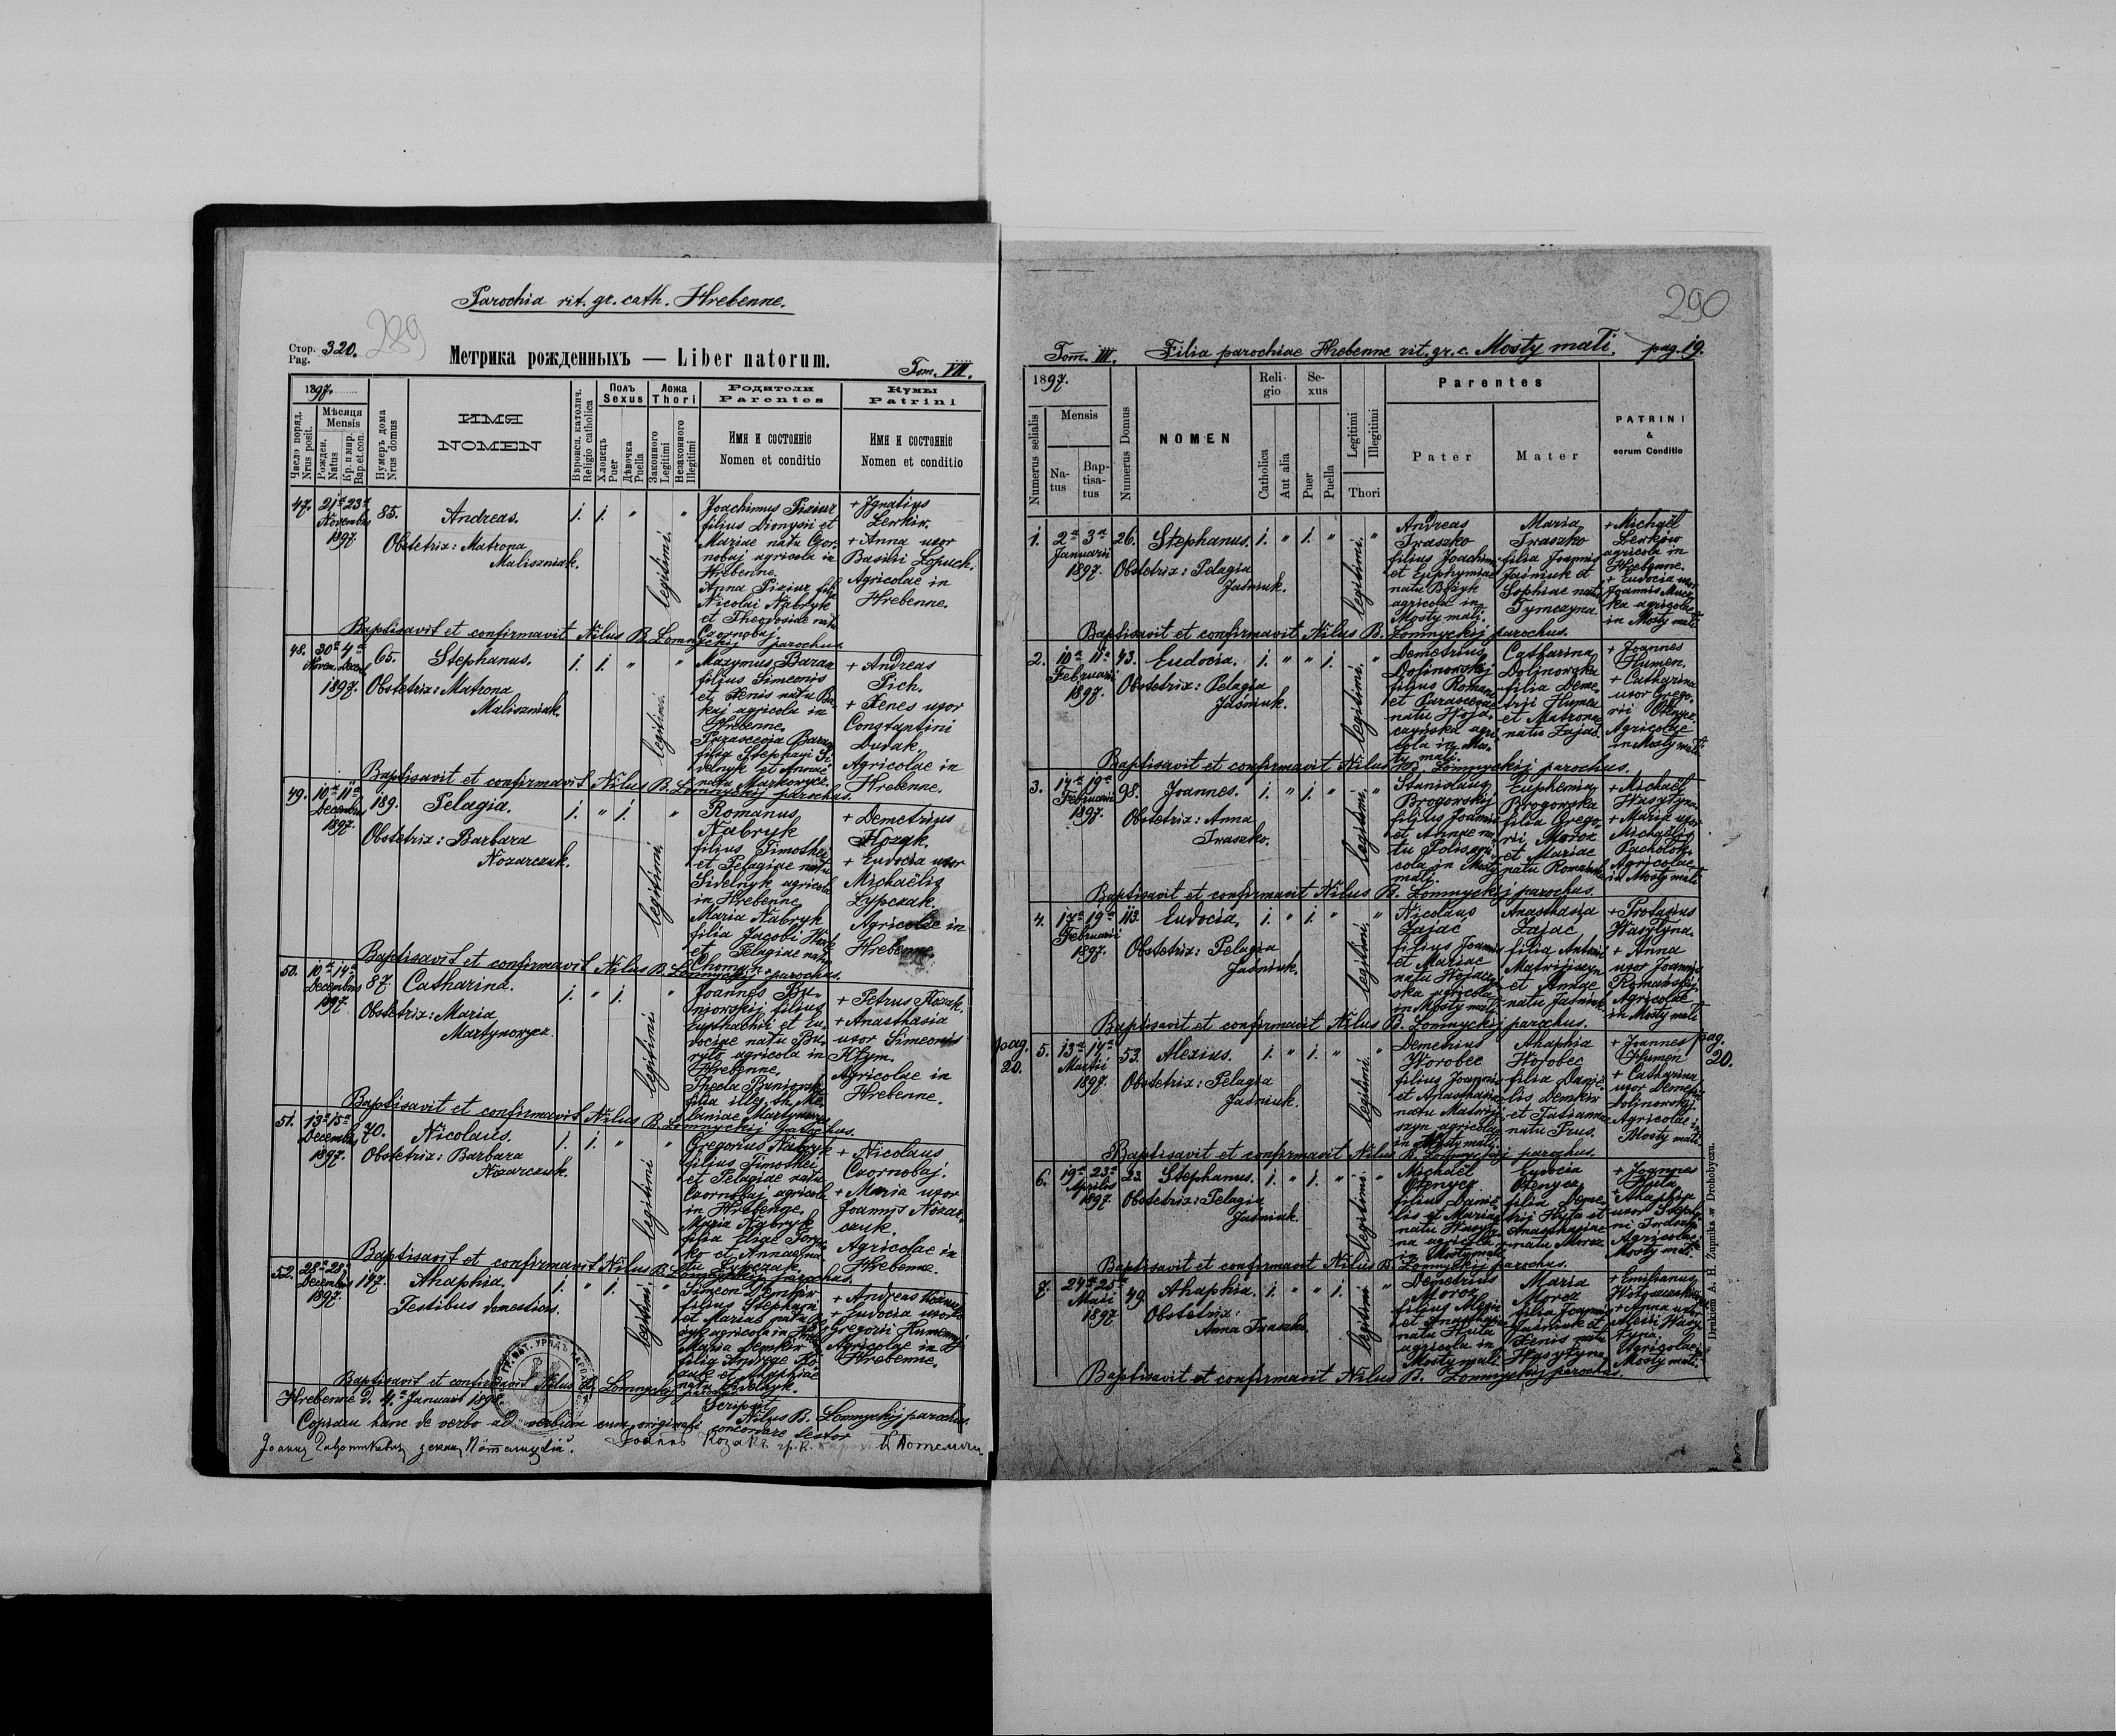 Parochia rit. gr. cath. Hrebenne.
289
Стор. Pag. 320.
Метрика рожденныхъ — Liber natorum.
Tom. VII.
1897.
Число поряд. Nrus posit.
Мѣсяця Mensis
Рожден. Natus
Кр. п мѵр. Bap. et con.
Нумеръ дома Nrus domus
ИМЯ
NOMEN
Вѣроисп. католич. Religio catholica
Полъ Sexus
Хлопецъ Puer
Дѣвочка Puella
Ложа Thori
Законного Legitimi
Незаконного Illegitimi
Родители Parentes
Имя и состояніе
Nomen et conditio
Кумы Patrini
Имя и состояніе
Nomen et conditio
47. 21a 23a Novembris 1897 85. Andreas. 1. 1. " legitimi. "
Obstetrix: Matrona
Maliszniak.
Joachimus Pisiur
filius Dionysii et
Mariae natu Czor-
nobaj agricola in
Hrebenne.
Anna Pisiur filia
Nicolai Nabryk
et Theodosiae natu
Czornobaj
+ Ignatius
Lerkiw.
+ Anna uxor
Basilii Lopuch.
Agricolae in
Hrebenne.
Baptisavit et confirmavit Nilus B. Lomnyckij parochus.
48. 30a 4a Novem. Decem. 1897. 65. Stephanus. 1. 1. " legitimi. "
Obstetrix: Matrona
Maliszniak.
Maxymus Baran
filius Simeonis
et Xenis natu Bu-
kaj agricola in
Hrebenne.
Parascevia Baran
filia Stephani Si-
delnyk et Annae
natu Markowycz.
+ Andreas
Pich.
+ Xenes uxor
Constantini
Dudak.
Agricolae in
Hrebenne.
Baptisavit et confirmavit Nilus B. Lomnyckij parochus.
49. 10a 11a Decembris 1897. 189. Pelagia. 1. " 1. legitimi "
Obstetrix: Barbara
Nozarczuk.
Romanus
Nabryk
filius Timothei
et Pelagiae natu
Sidelnyk agricola
in Hrebenne
Maria Nabryk
filia Jacobi
et Pelagiae natu
Chomyn.
+ Demetrius
Kozak.
+ Eudocia uxor
Michaëlis
Lypczak.
Agricolae in
Hrebenne.
Baptisavit et confirmavit Nilus B. Lomnyckij parochus.
50. 10a 14a Decembris 1897. 87. Catharina. 1. " 1. legitimi "
Obstetrix: Maria
Martynowycz.
Joannes Bu-
niowskij filius
Eusthachii et Eu-
dociae natu Bu-
ryło agricola in
Hrebenne.
Thecla Buniowska
filia illeg. th. Me-
laniae Martynowycz
+ Petrus Kozak.
+ Anasthasia
uxor Simeonis
Kłym.
Agricolae in
Hrebenne.
Baptisavit et confirmavit Nilus B. Lomnyckij parochus.
51. 13a 15a Decembris 1897. 70. Nicolaus. 1. 1. " legitimi "
Obstetrix: Barbara
Nozarczuk.
Gregorius Nabryk
filius Timothei
et Pelagiae natu
Czornobaj agricola
in Hrebenne.
Maria Nabryk
filia Eliae
et Annae na-
tu Lypczak.
+ Nicolaus
Czornobaj.
+ Maria uxor
Joannis Nozar-
czuk.
Agricolae in
Hrebenne.
Baptisavit et confirmavit Nilus B. Lomnyckij parochus.
52. 28a 28a Decembris 1897. 147. Ahaphia. 1. " 1. legitimi "
Testibus domesticis.
Simeon Demkiw
filius Stephani
et Mariae natu
agricola in
Maria Demkiw
filia Andreae
et Ahaphiae
natu Sidelnyk.
+ Andreas
+ Eudocia uxor
Gregorii Humenny
Agricolae in
Hrebenne.
Baptisavit et confirmavit Nilus B. Lomnyckij parochus.
Hrebenne d. 4a Januarii 1898.
Scripsit
Nilus B. Lomnyckij parochus.
Copiam hanc de verbo ad verbum cum originali concordare testor
290
Tom. III. Filia parochiae Hrebenne rit. gr. c. Mosty mali. pag. 19.
1897.
Numerus serialis
Mensis
Na-tus
Bap-tisa-tus
Numerus Domus
NOMEN
Reli-gio
Catholica
Aut alia
Se-xus
Puer
Puella
Legitimi
Illegitimi
Thori
Parentes
Pater
Mater
PATRINI
&
eorum Conditio
1. 2a 3a Januarii 1897. 26. Stephanus. 1. " 1. " legitimi. "
Obstetrix: Pelagia
Jaśniuk.
Andreas
Iwaszko
filius Joachimi
et Euphymiae
natu Bożyk
agricola in
Mosty mali.
Maria
Iwaszko
filia Joannis
Jaśniuk et
Sophiae natu
Tymczyna
+ Michaël
Lerkiw
agricola in
Hrebenne.
+ Eudocia uxor
Joannis Mucz-
ka agricolae
in Mosty mali
Baptisavit et confirmavit Nilus B. Lomnyckij parochus.
2. 10a 11a Februarii 1897. 43. Eudocia. 1. " " 1. legitimi. "
Obstetrix: Pelagia
Jaśniuk.
Demetrius
Dolinowskij
filius Romani
et Parasceviae
natu Woja-
czyńska agri-
cola in Mo-
sty mali.
Catharina
Dolinowska
filia Deme-
trii Humen
et Matronae
natu Zajac.
+ Joannes
Humen.
+ Catharina
uxor Grego-
rii Ożenycz.
Agricolae
in Mosty mali
Baptisavit et confirmavit Nilus B. Lomnyckij parochus.
3. 14a 19a Februarii 1897. 98. Joannes. 1. " 1. " legitimi. "
Obstetrix: Anna
Iwaszko.
Stanislaus
Brogowskij
filius Joannis
et Annae na-
tu Polis agri-
cola in Mosty
mali.
Euphemia
Brogowska
filia Grego-
rii Moroz
et Mariae
natu Romańska
+ Michaël
Wasylyna.
+ Maria uxor
Michaëlis
Pachołok.
Agricolae
in Mosty mali
Baptisavit et confirmavit Nilus B. Lomnyckij parochus.
4. 17a 19a Februarii 1897. 113. Eudocia. 1. " 1. " legitimi. "
Obstetrix: Pelagia
Jaśniuk.
Nicolaus
Zajac
filius Joannis
et Mariae
natu Wojaczyń-
ska agricola
in Mosty mali
Anasthasia
Zajac
filia Antonii
Matwijiszyn
et Annae
natu Jaśniuk
+ Protasius
Wasylyna.
+ Anna
uxor Joannis
Romańskij.
Agricolae
in Mosty mali
Baptisavit et confirmavit Nilus B. Lomnyckij parochus.
pag. 20.
5. 13a 14a Martii 1897. 53. Alexius. 1. " 1. " legitimi. "
Obstetrix: Pelagia
Jaśniuk.
Demetrius
Worobec
filius Joannis
et Anasthasiae
natu Matwiji-
szyn agricola
in Mosty mali.
Ahaphia
Worobec
filia Danië-
lis Demkiw
et Tatiannae
natu Prus.
+ Joannes
Humen
+ Catharina
uxor Demetrii
Dolinowskij.
Agricolae in
Mosty mali.
pag. 20.
Baptisavit et confirmavit Nilus B. Lomnyckij parochus.
6. 19a 23a Aprilis 1897. 23. Stephanus. 1. " 1. " legitimi. "
Obstetrix: Pelagia
Jaśniuk.
Michaël
Ożenycz
filius Danië-
lis et Mariae
natu Wasyly-
na agricola
in Mosty mali.
Eudocia
Ożenycz
filia Deme-
trij Huta et
Anasthasiae
natu Moroz
+ Joannes
Huta
+ Ahaphia
uxor Stepha-
ni Iwaszko
Agricolae
Mosty mali.
Baptisavit et confirmavit Nilus B. Lomnyckij parochus.
7. 24a 25a Maii 1897 49. Ahaphia. 1. " " 1. legitimi "
Obstetrix:
Anna Iwaszko.
Demetrius
Moroz
filius Alexii
et Anasthasiae
natu Huta
agricola in
Mosty mali.
Maria
Moroz
filia Joannis
Jaśniuk et
Xenis natu
Wasylyna
+ Emilianus
+ Anna uxor
Alexii Wasy-
lyna.
Agricolae
Mosty mali.
Baptisavit et confirmavit Nilus B. Lomnyckij parochus.
Drukiem A. H. Żupnika w Drobobyczu.